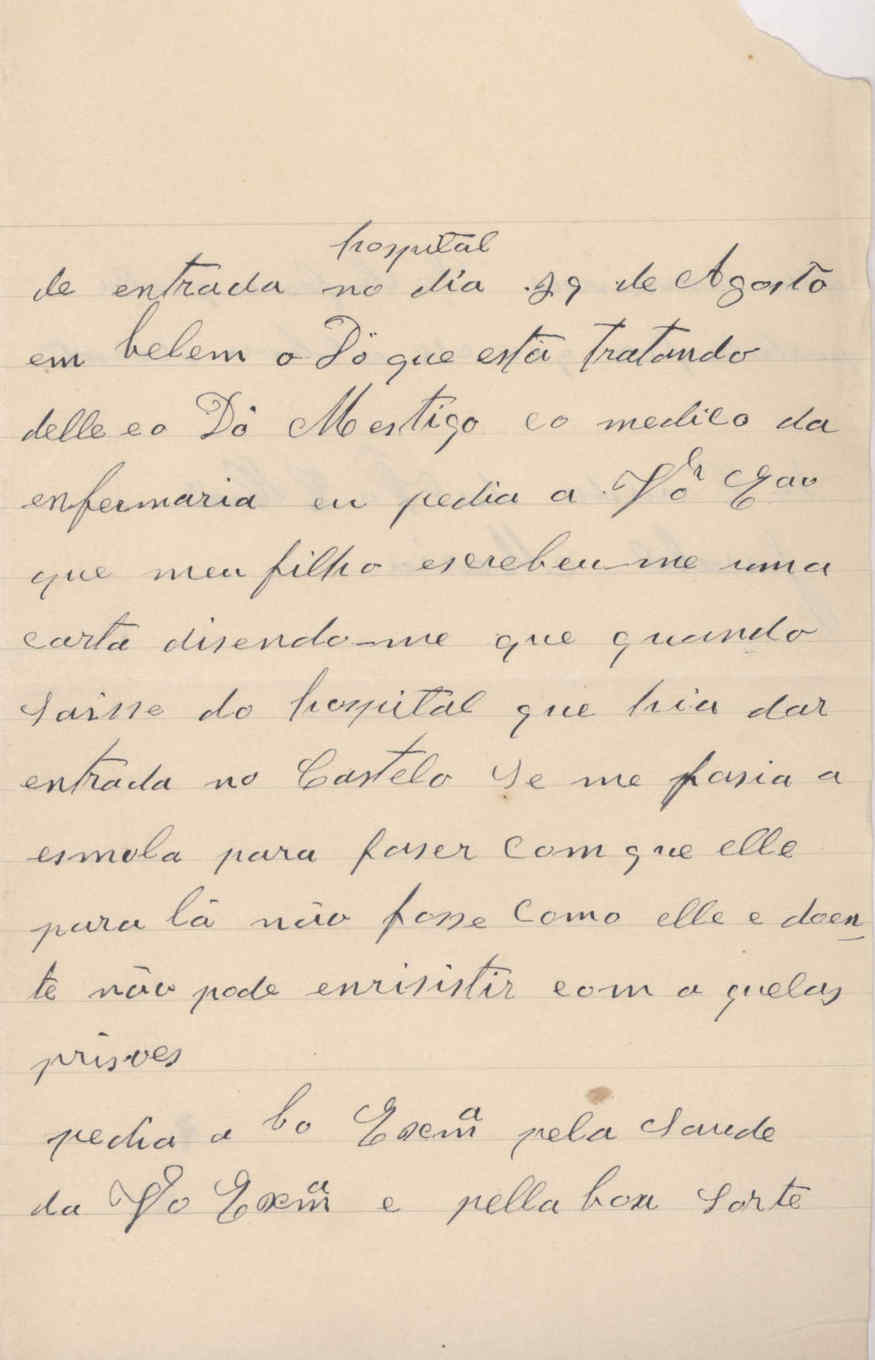 hospital
de entrada no dia 29 de Agosto
em belem o Dô que està tratando
delle e o Dô Mestigo eo medico da
enfermaria eu pedia a Vo
que meu filho escrebeu-me uma
carta disendo-me que quando
saisse do hospital que hia dar
entrada no Castelo Se me fasia a
esmola para faser Com que elle
para lá não fosse Como elle e doen
te não pode enrisistir com a quelas
prisoes
pedia a bo Excmª pela Saude
da Vo Excmª e pella boa Sorte